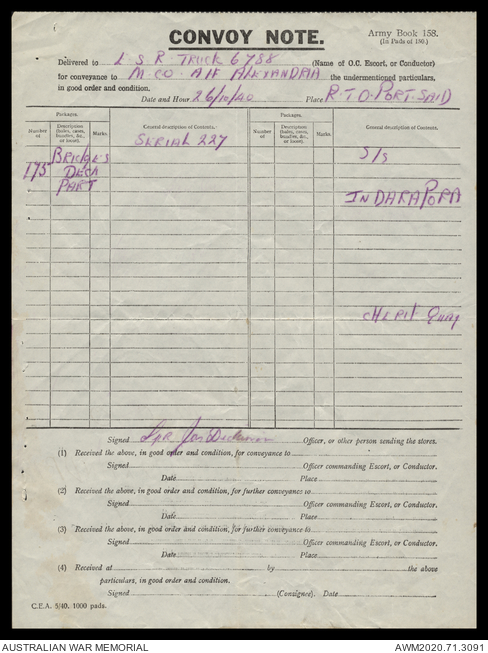 CONVOY NOTE.
Army Book 158.
(In Pads of 150.)
Delivered to E S R. TRUCK 6788 (Name of O.C. Escort, or Conductor)
for conveyance to M.CO. AIF ALEXANDRIA the undermentioned particulars,
in good order and condition.
Date and Hour 26/10/40 Place R.T.O. PORT. SAID
Packages.
Number of
Description (bales, cases, bundles, &c., or loose).
Marks.
General description of Contents.
Packages.
Number of
Description (bales, cases, bundles, &c., or loose).
Marks.
General description of Contents.
SERIAL 227
S/s
175
DECA
PART
INDARAPORA
Signed Spr Jas Officer, or other person sending the stores.
(1) Received the above, in good order and condition, for conveyance to
Signed Officer commanding Escort, or Conductor.
Date Place
(2) Received the above, in good order and condition, for further conveyance to
Signed Officer commanding Escort, or Conductor.
Date Place
(3) Received the above, in good order and condition, for further conveyance to
Signed Officer commanding Escort, or Conductor.
Date Place
(4) Received at by the above
particulars, in good order and condition.
Signed (Consignee). Date
C.E.A. 5/40. 1000 pads.
AUSTRALIAN WAR MEMORIAL
AWM2020.71.3091